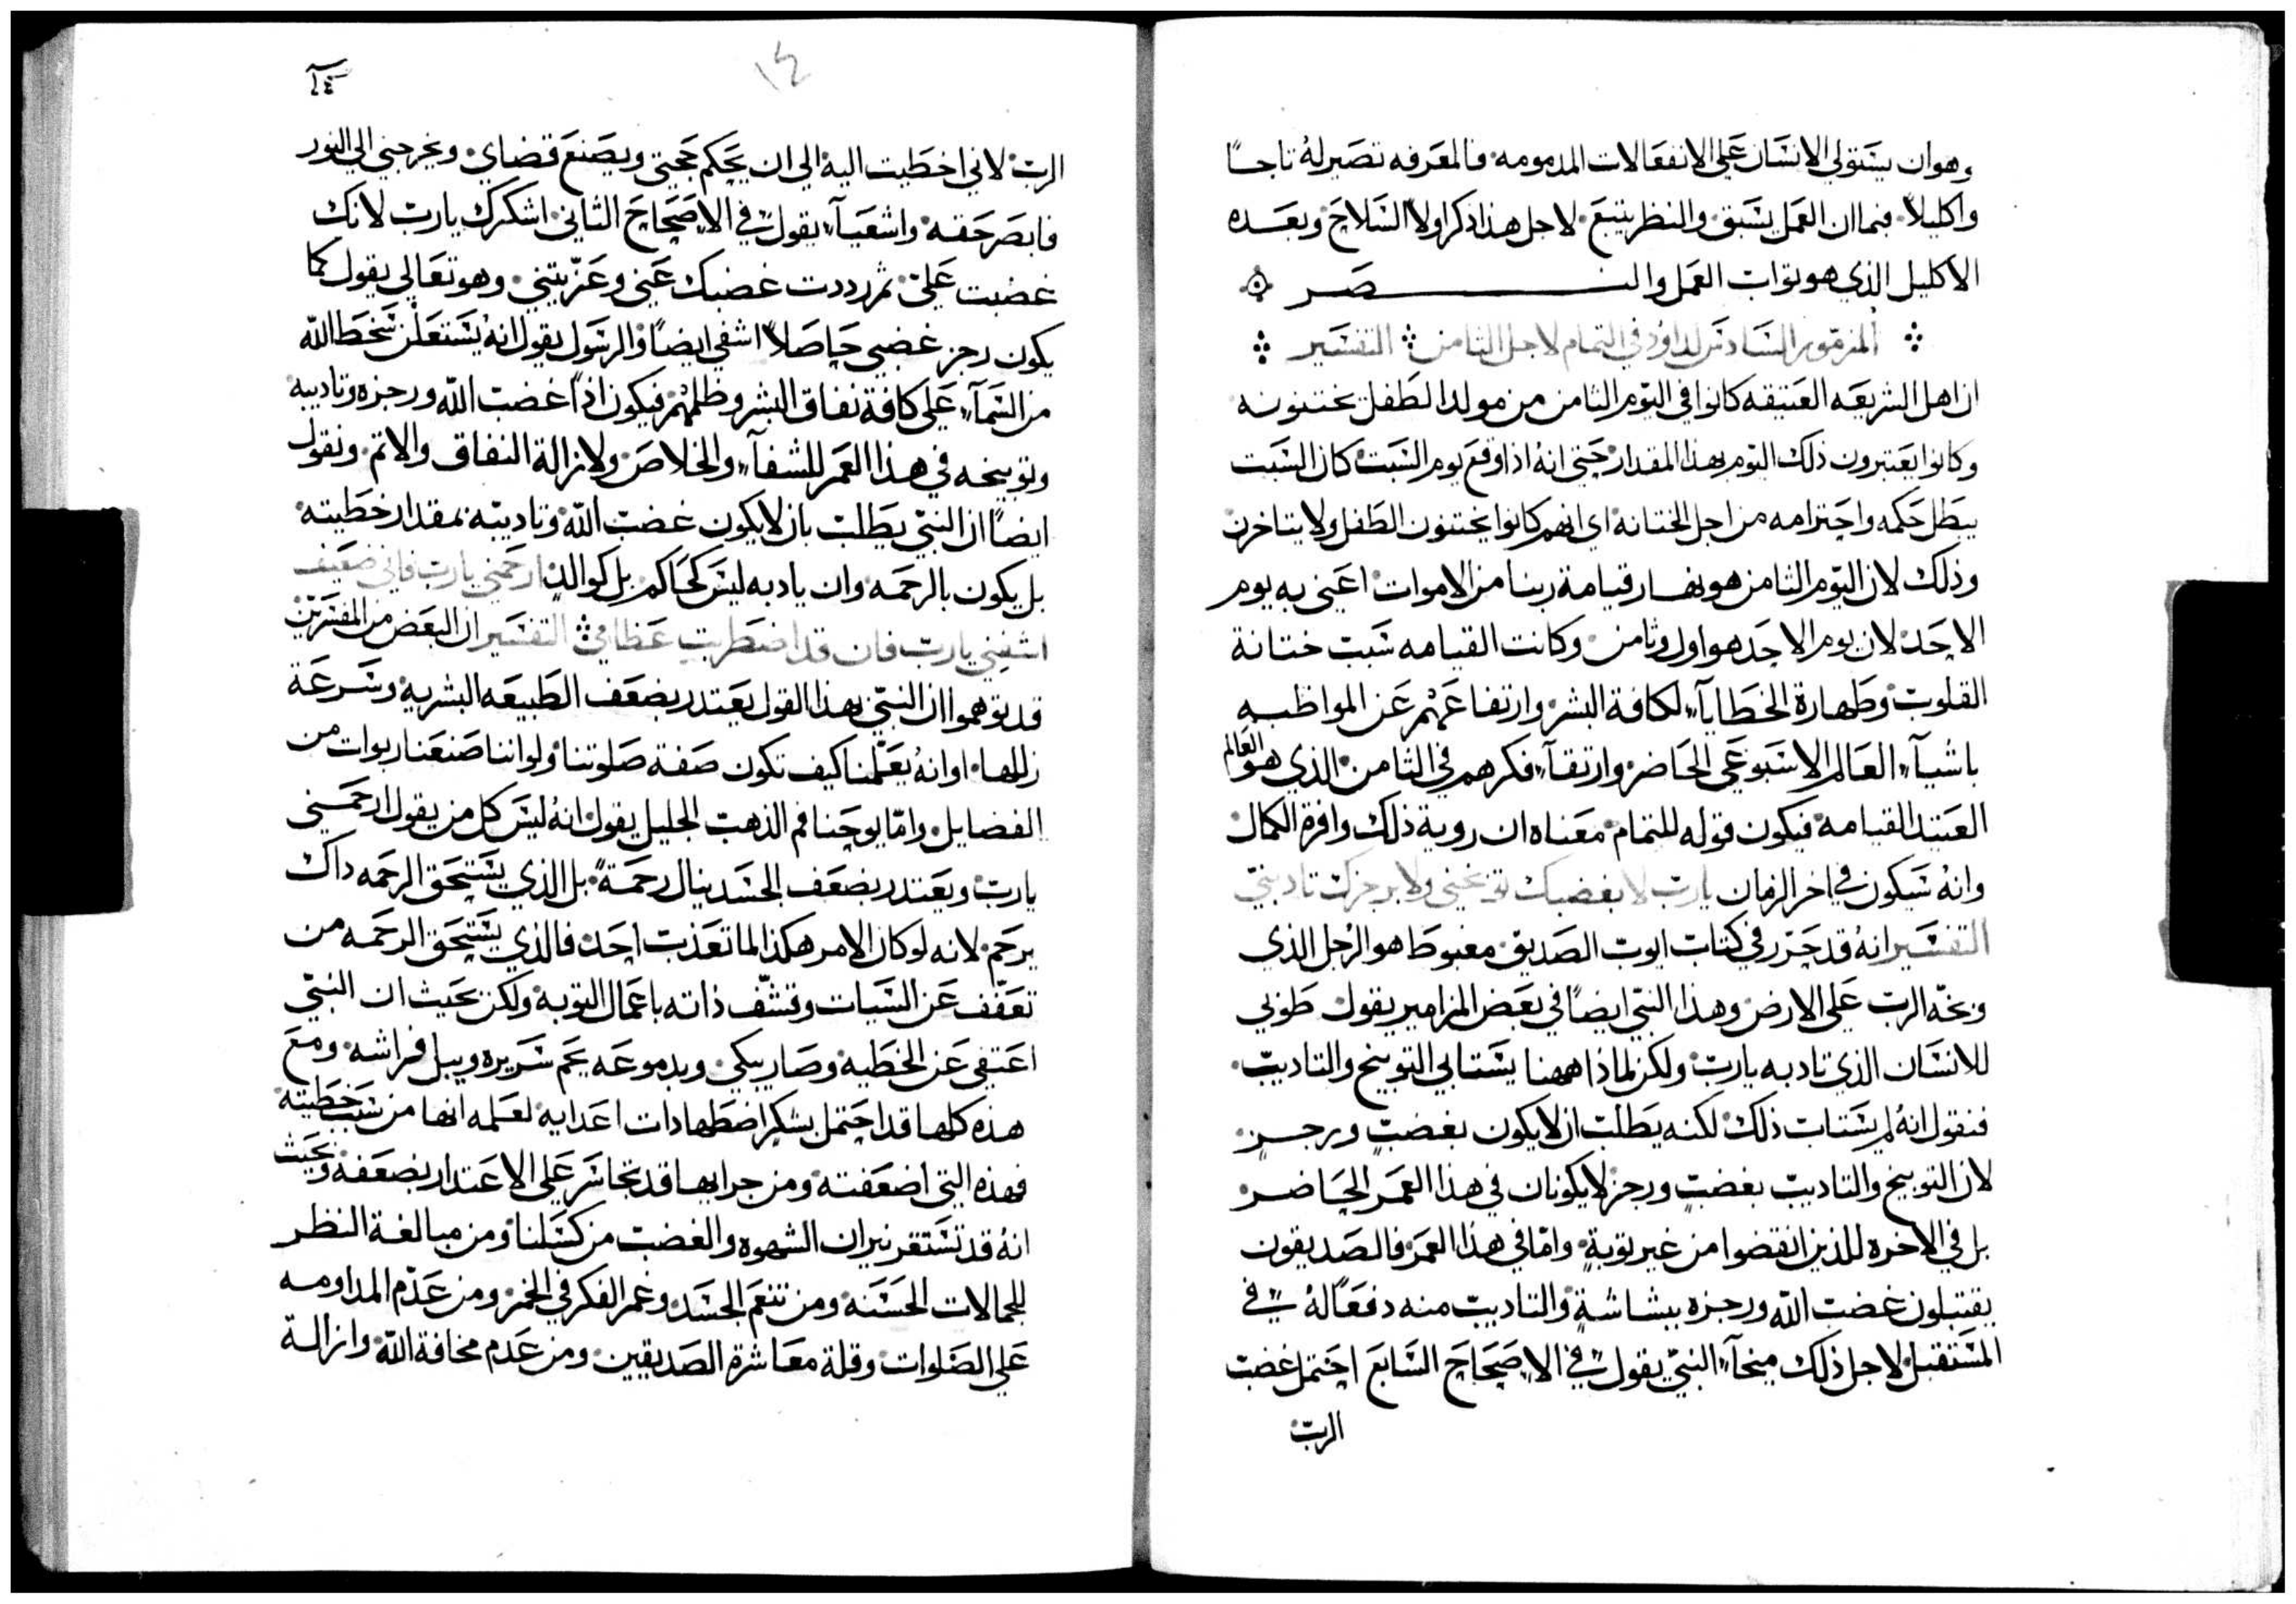 وهو ان يستولي الانسان علي الانفعالات المدمومه فالمعرفه تصير له تاجاً
واكليلاً فبما ان العمل يسبق والنظر يتبع لاجل هذا ذكر اولا السلاح وبعده
الاكليل الذي هو تواب العمل والنصر
المزمور السادس لداود في التمام لاجل الثامن التفسير
ان اهل الشريعه العتيقه كانوا في اليوم الثامن من مولد الطفل يختنونه
وكانوا يعتبرون ذلك اليوم بهذا المقدار حتي انه اذا وقع يوم السبت كان السبت
يبطل حكمه واحترامه من اجل الختانة اي انهم كانوا يختنون الطفل ولا يتاخرون
وذلك لان اليوم الثامن هو نهار قيامة ربنا من الاموات اعني به يوم
الاحد لان يوم الاحد هو اول وثامن وكانت القيامه سبب ختانة
القلوب وطهارة الخطايآء لكافة البشر وارتفاعهم عن المواظبه
باشيآء العالم الاسبوعي الحاضر وارتقآء فكرهم في الثامن الذي هو العالم
العتيد القيامة فيكون قوله للتمام معناه ان روية ذلك وافرة الكمال
وانه سيكون في اخر الزمان يارب لا بغضبك توبخني ولا برجزك تادبني
التفسير انه قد حرر في كتاب ايوب الصديق مغبوطا هو الرجل الذي
وبخه الرب علي الارض وهذا النبي ايضاً في بعض المزامير يقول طوبي
للانسان الذي تادبه يارب ولكن لماذا ههنا يستابي التوبيخ والتاديب
فنقول انه لم يستاب ذلك لكنه يطلب ان لا يكون بغضب ورجز
لان التوبيخ والتاديب بغضب ورجز لا يكونان في هذا العمر الحاضر
بل في الاخره للذين انقضوا من غير توبةٍ واما في هذا العمر فالصديقون
يقتبلون غضب الله ورجزه ببشاشةٍ والتاديب منه دفعاً له في
المستقبل لاجل ذلك ميخآء النبي يقول في الاصحاح السابع احتمل غضب
الرب
١٤
١٤
الرب لاني اخطيت اليه الي ان يحكم حجتي ويصنع قضاي ويخرجني الي النور
فابصر حقه واشعيآء يقول في الاصحاح الثاني اشكرك يارب لانك
غضبت علي ثم رددت غضبك عني وعزيتني وهو تعالي يقول كما
يكون رجز غضبي حاصلاً اشفي ايضاً والرسول يقول انه يستعلن سخط الله
من السمآء علي كافة نفاق البشر وظلمهم فيكون اذاً غضب الله ورجزه وتاديبه
وتوبيخه في هذا العمر للشفآء والخلاص ولازالة النفاق والاثم ونقول
ايضاً ان النبي يطلب بان لا يكون غضب الله وتاديبه بمقدار خطيته
بل يكون بالرحمه وان يادبه ليس كحاكم بل كوالد ارحمني يارب فاني ضعيف
اشفيني يارب فان قد اضطربت عظامي التفسير ان البعض من المفسرين
قد توهموا ان النبي بهذا القول يعتدر بضعف الطبيعه البشريه وسرعة
زللها او انه يعلمنا كيف تكون صفة صلوتنا ولو اننا صنعنا ربوات من
الفضايل واما يوحنا فم الذهب الجليل يقول انه ليس كل من يقول ارحمني
يارب ويعتدر بضعف الجسد ينال رحمةً بل الذي يستحق الرحمه داك
يرحم لانه لو كان الامر هكذا لما تعذب احد فالذي يستحق الرحمه من
تعفف عن السيات وقشف ذاته باعمال التوبة ولكن بحيث ان النبي
اعتفي عن الخطيه وصار يبكي وبدموعه يحم سريره ويبل فراشه ومع
هذه كلها قد احتمل بشكر اضطهادات اعدايه لعلمه انها من سبب خطيته
فهذه التي اضعفته ومن جرايها قد تجاسر علي الاعتدار بضعفه وبحيث
انه قد تستقر نيران الشهوه والغضب من كسلنا ومن مبالغة النظر
للجمالات الحسنه ومن تنعم الجسد وغمر الفكر في الخمر ومن عدم المداومه
علي الصلوات وقلة معاشرة الصديقين ومن عدم مخافة الله وازالة